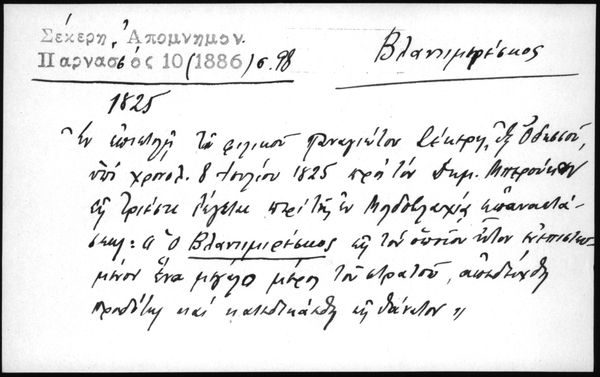 Σέκερη, Ἀπομνημον.
Παρνασσός 10 (1886) σ. 98
Βλαντιμιρέσκος
1825
Ἐν ἐπιστολῇ τοῦ φιλικοῦ Παναγιώτου Σέκερη, ἐξ Ὀδησσοῦ,
ὑπό χρονολ. 8 Ἰουλίου 1825 πρός τόν Δημ.
εἰς Τριέστι λέγεται περί τῆς ἐν Μολδοβλαχίᾳ ἐπαναστά-
σεως: « Ὁ Βλαντιμιρέσκος εἰς τόν ὁποῖον ἦτον ἐμπιστευ-
μένον ἕνα μεγάλο μέρος τοῦ στρατοῦ, ἀπεδείχθη
προδότης καί κατεδικάσθη εἰς θάνατον »